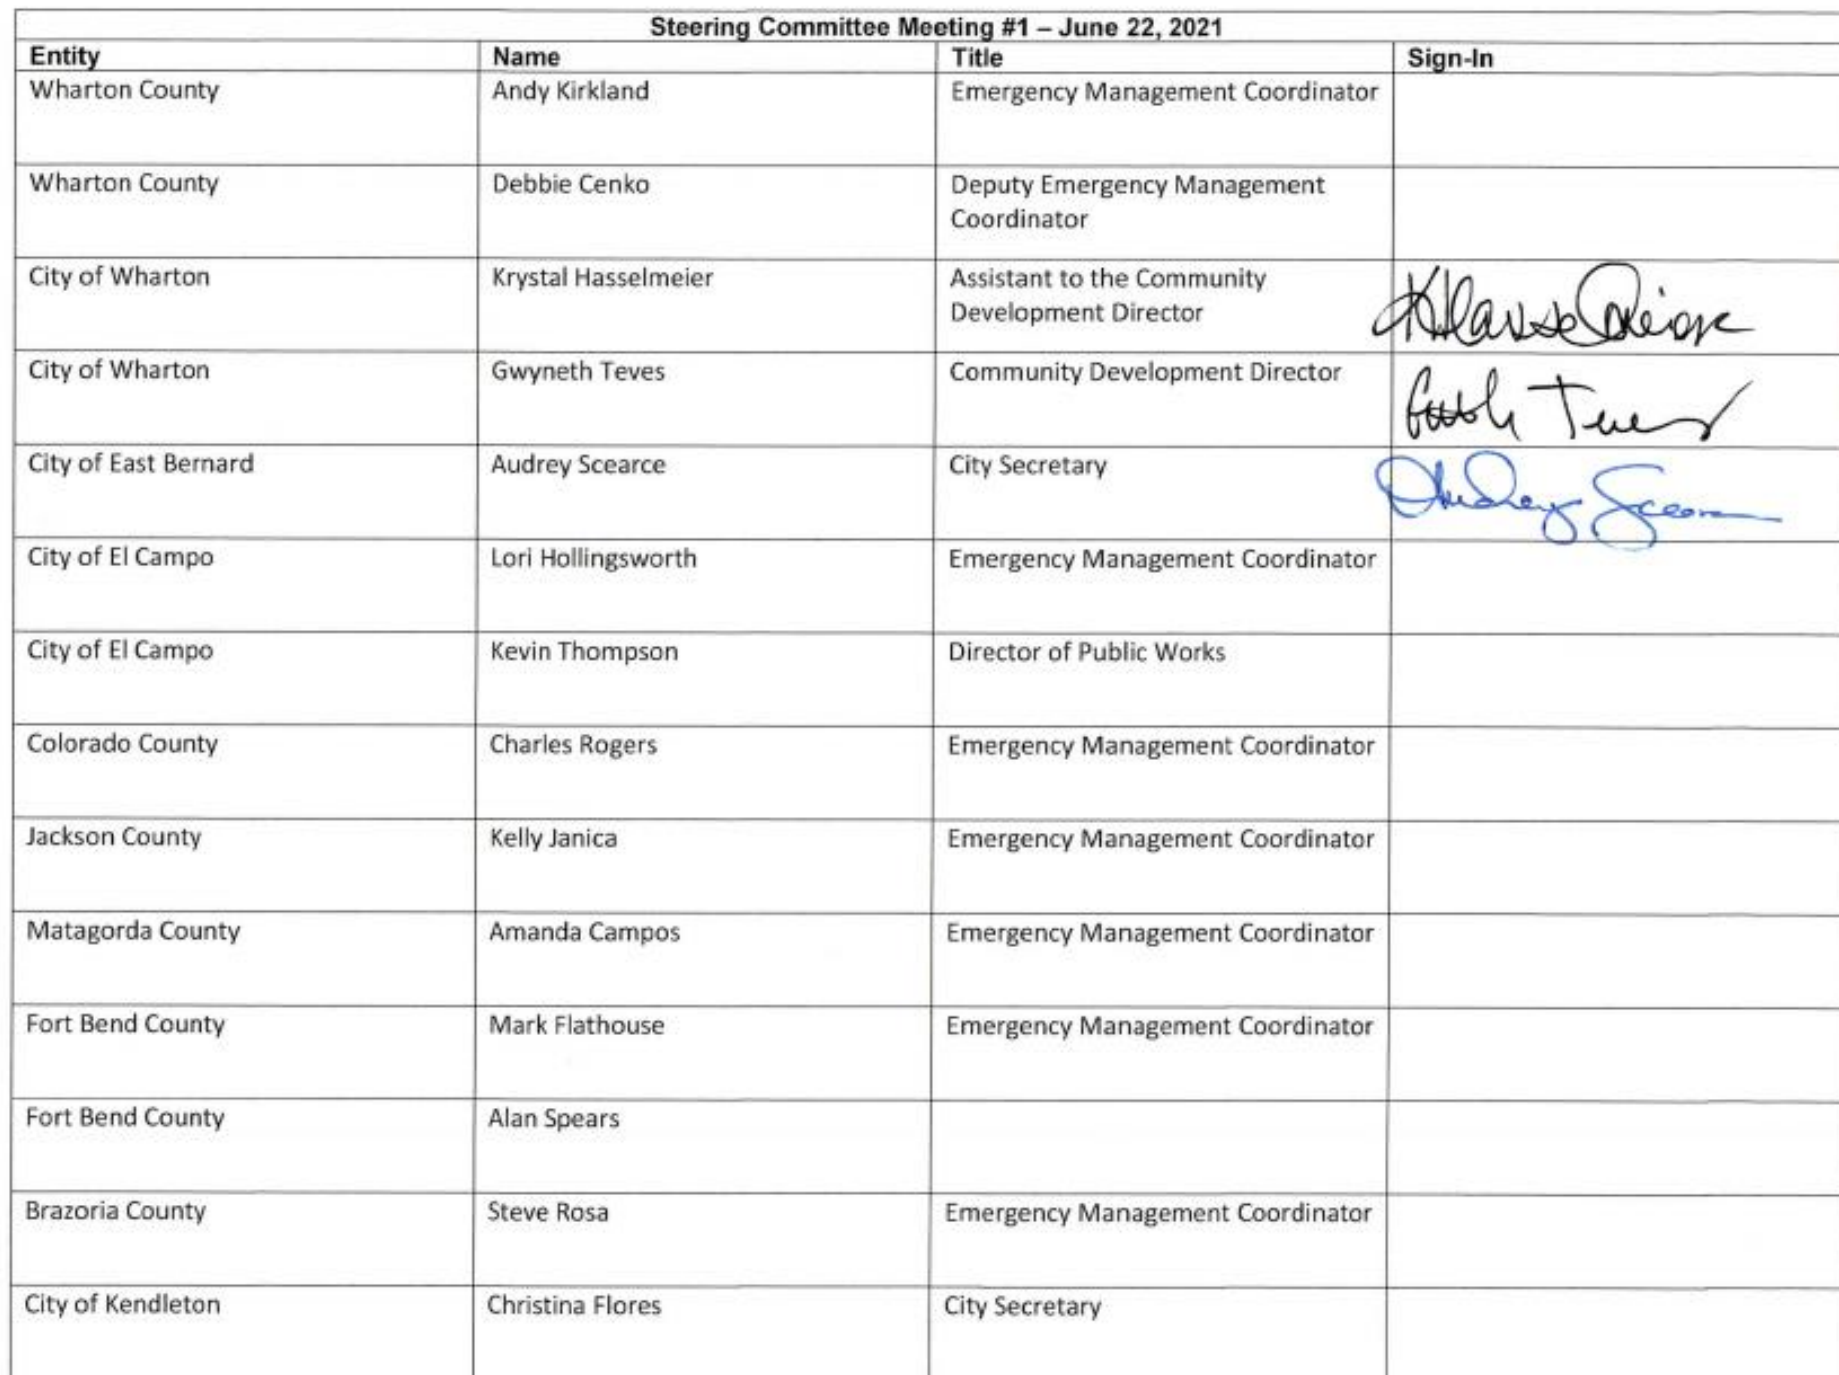 Steering Committee Meeting #1 – June 22, 2021
Entity Name Title Sign-In
Wharton County Andy Kirkland Emergency Management Coordinator
Wharton County Debbie Cenko Deputy Emergency Management
Coordinator
City of Wharton Krystal Hasselmeier Assistant to the Community
Development Director
City of Wharton Gwyneth Teves Community Development Director
City of East Bernard Audrey Scearce City Secretary Audrey Scearce
City of El Campo Lori Hollingsworth Emergency Management Coordinator
City of El Campo Kevin Thompson Director of Public Works
Colorado County Charles Rogers Emergency Management Coordinator
Jackson County Kelly Janica Emergency Management Coordinator
Matagorda County Amanda Campos Emergency Management Coordinator
Fort Bend County Mark Flathouse Emergency Management Coordinator
Fort Bend County Alan Spears
Brazoria County Steve Rosa Emergency Management Coordinator
City of Kendleton Christina Flores City Secretary